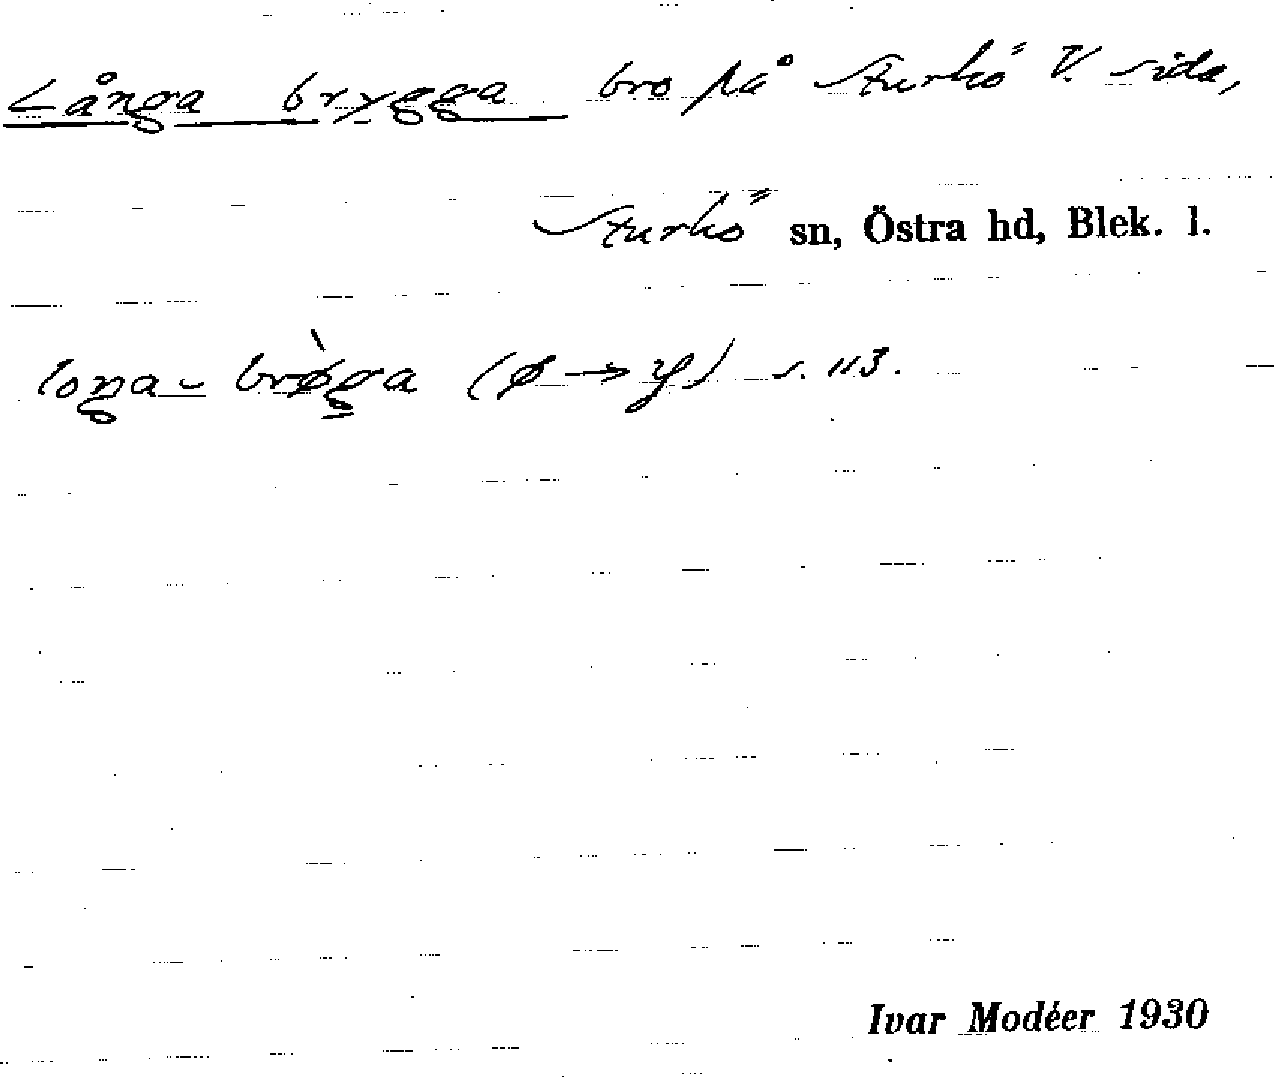 Långa brygga bro på Sturkö V. sida,
Sturkö sn, Östra hd, Blek. l.
loŋa- brø̀ga (ø → y) s. 113.
Ivar Modéer 1930